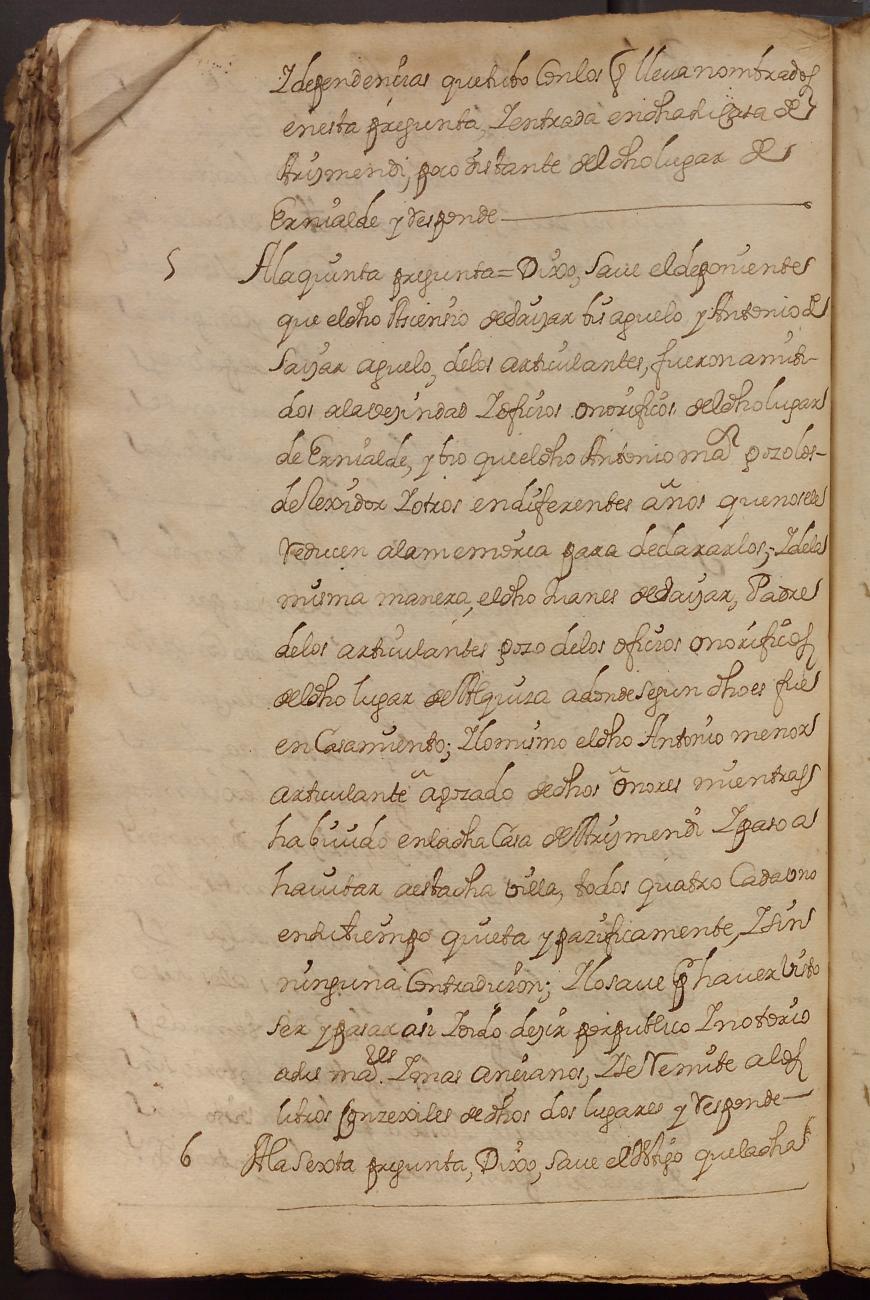 Y dependencias que tubo Con los q̃ lleva nombrados
en esta pregunta, Y entrada en dha su Casa de
Arijmendi, poco distante del dho lugar de
Ernialde y Responde
5 A la quinta pregunta = Dixo, Save el deponiente
que el dho Asensio de Saijar bis aguelo y Antonio de
Saijar aguelo, de los articulantes, fueron amiti-
dos a la vejindad Y oficios onorificos del dho lugar
de Ernialde, y bio que el dho Antonio maꝛ gozo los
de Rexidor Y otros en diferentes años que no se le
Reducen a la memoria para declararlos; Y de la
misma manera, el dho Juanes de Saijar, Padre
de los articulantes gozo de los oficios onorificos
del dho lugar de Alquiza adonde segun dho es fue
en Casamiento; Y lo mismo el dho Antonio menor
articulante a gozado de dhos onores mientras
ha bivido en la dha Casa de Arijmendi Y paso a
havitar a esta dha villa, todos quatro Cada vno
en su tiempo quieta y pazificamente, Y sin
ninguna Contradicion; Y lo save p̃ haver visto
ser y pasar asi Y oido dejir por publico Y notorio
a sus ma.res Y mas ancianos, Y se Remite a los
libros Conzexiles de dhos dos lugares y Responde
6 A la Sexta pregunta, Dixo, save el tt.igo que la dha